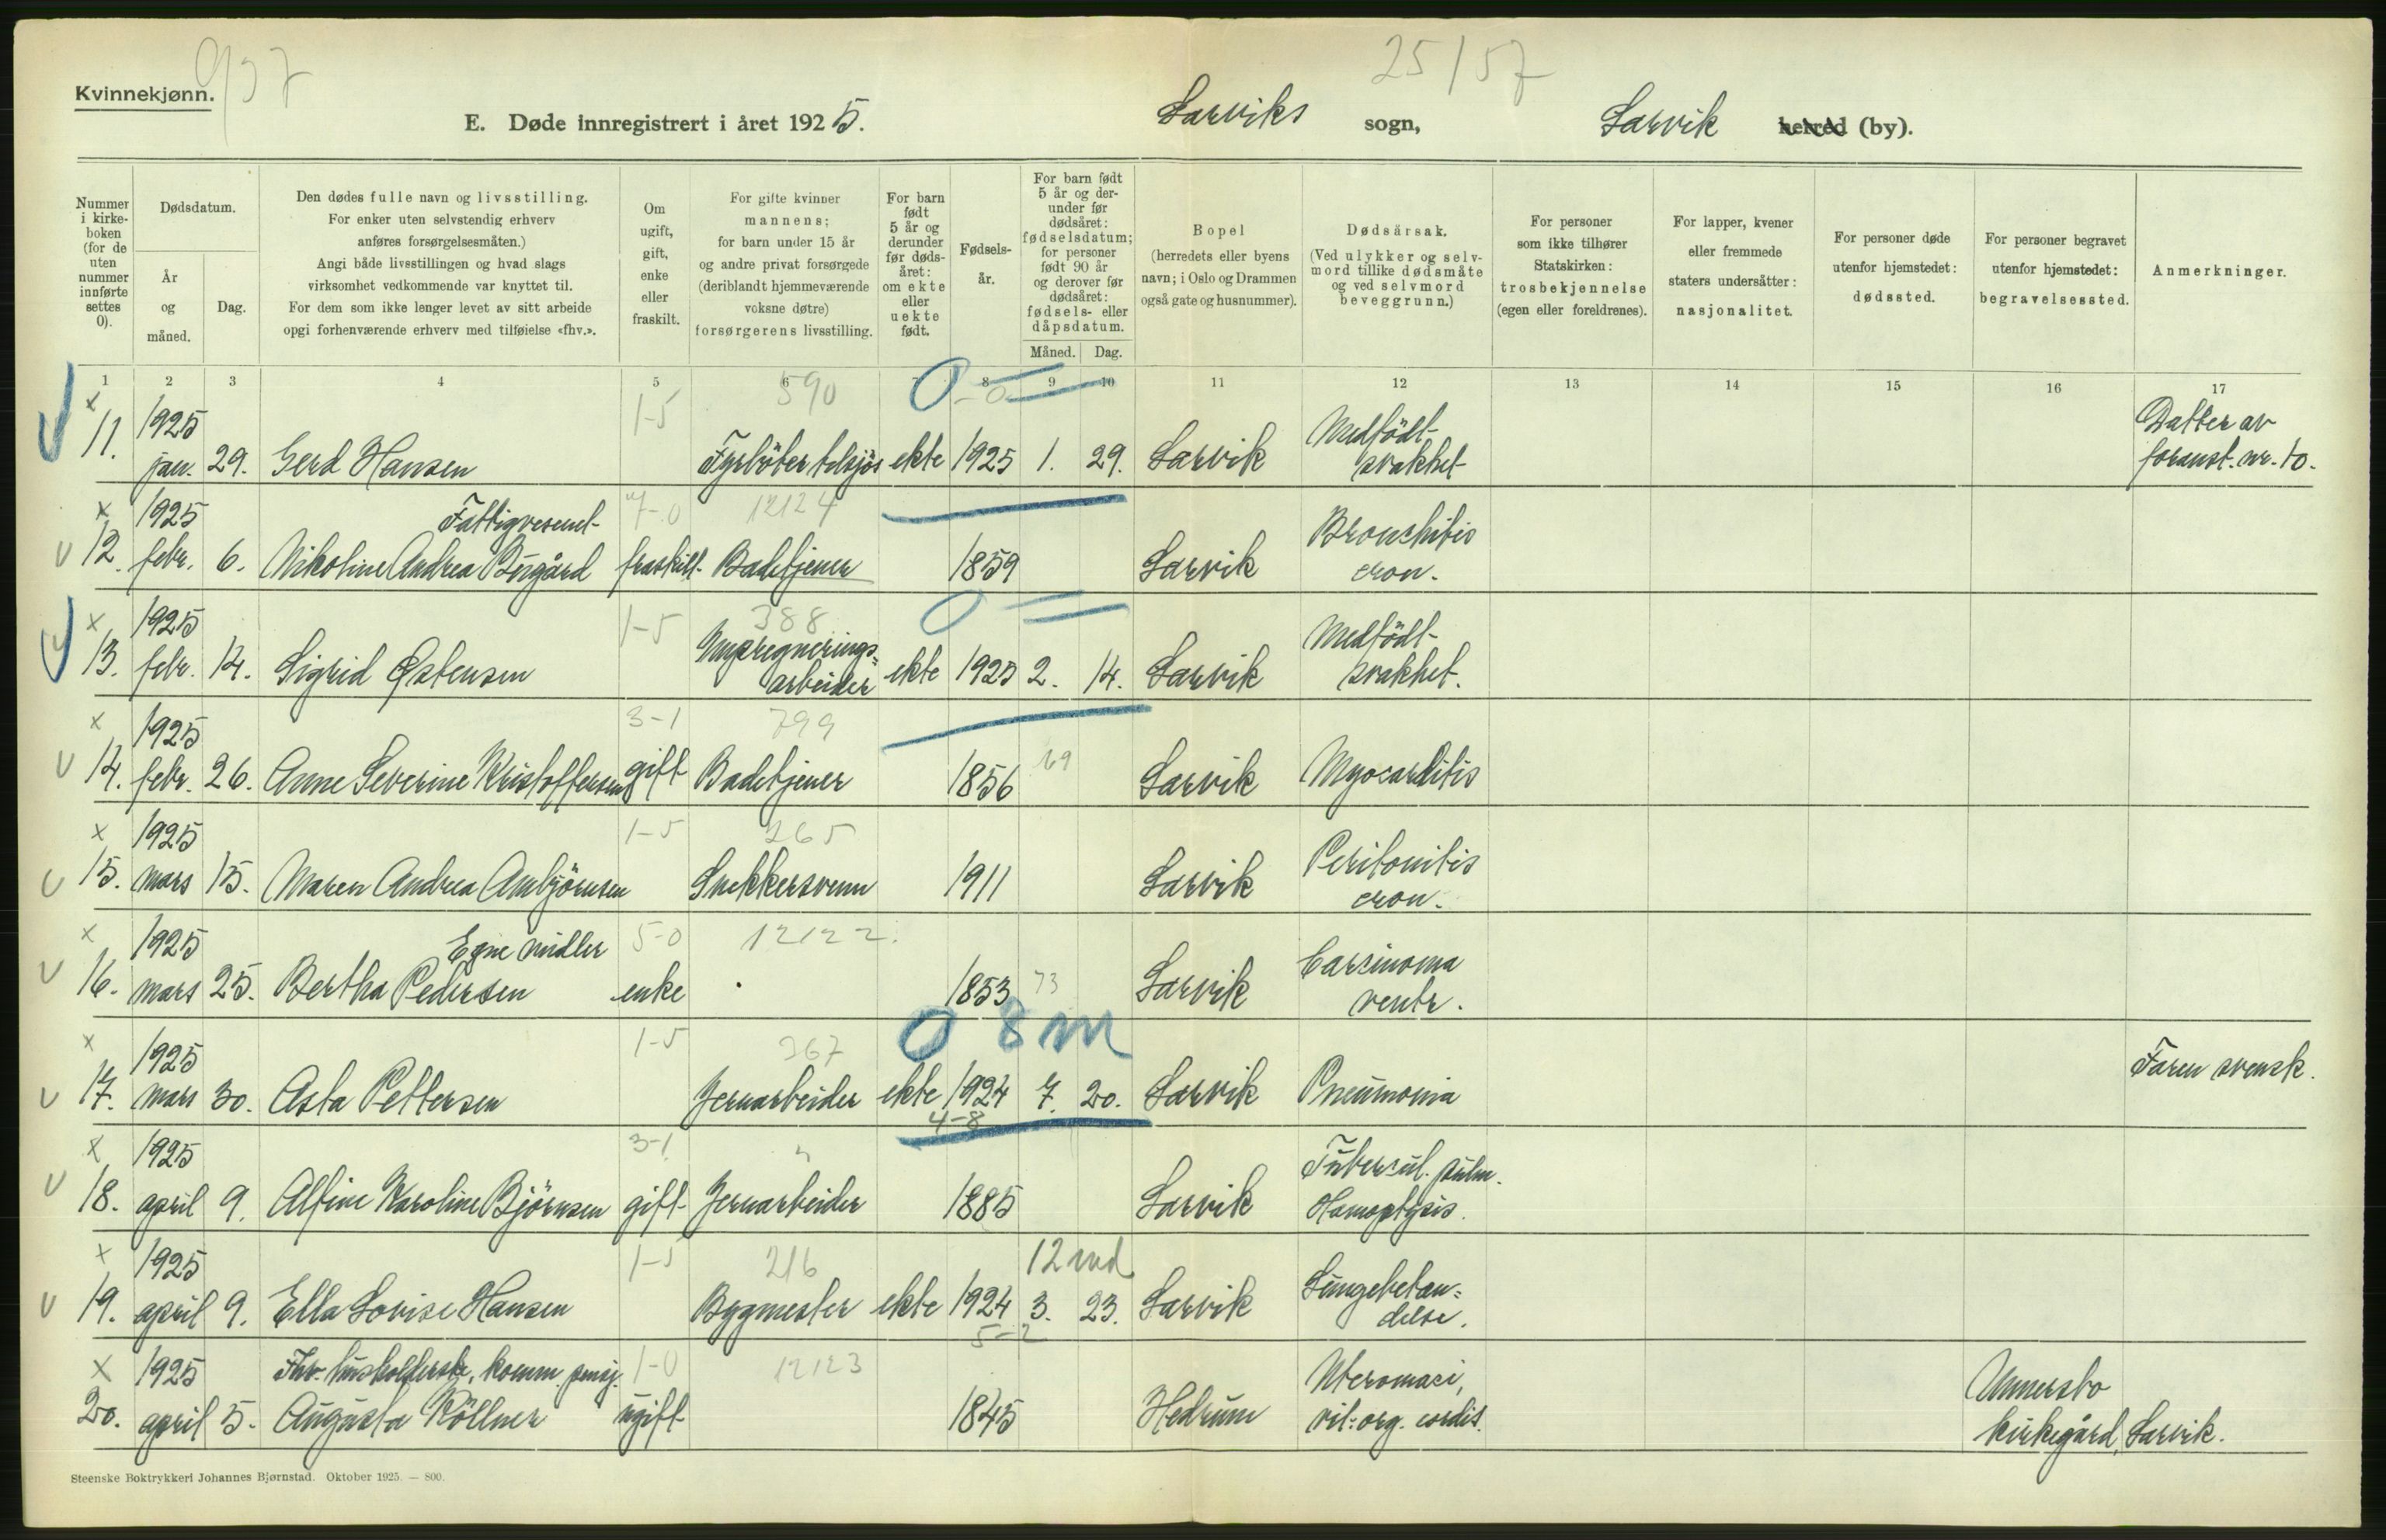 937
25/57
Kvinnekjønn.
E. Døde innregistrert i året 1925. Larviks sogn, Larvik herred (by).
Nummer i kirkeboken (for de uten nummer innførte settes 0).
Dødsdatum.
År og måned.
Dag.
Den dødes fulle navn og livsstilling.
For enker uten selvstendig erhverv anføres forsørgelsesmåten.)
Angi både livsstillingen og hvad slags virksomhet vedkommende var knyttet til.
For dem som ikke lenger levet av sitt arbeide opgi forhenværende erhverv med tilføielse «fhv.».
Om ugift, gift, enke eller fraskilt.
For gifte kvinner mannens; for barn under 15 år og andre privat forsørgede (deriblandt hjemmeværende voksne døtre) forsørgerens livsstilling.
For barn født 5 år og derunder før dødsåret: om ekte eller uekte født.
Fødselsår.
For barn født 5 år og derunder før dødsåret: fødselsdatum; for personer født 90 år og derover før dødsåret: fødsels- eller dåpsdatum.
Måned. Dag.
Bopel (herredets eller byens navn; i Oslo og Drammen også gate og husnummer).
Dødsårsak. (Ved ulykker og selvmord tillike dødsmåte og ved selvmord beveggrunn.)
For personer som ikke tilhører Statskirken: trosbekjennelse (egen eller foreldrenes).
For lapper, kvener eller fremmede staters undersåtter: nasjonalitet.
For personer døde utenfor hjemstedet: dødssted.
For personer begravet utenfor hjemstedet: begravelsessted.
Anmerkninger.
1 2 3 4 5 6 7 8 9 10 11 12 13 14 15 16 17
x 1-5 590 0
11. 1925 jan. 29. Gerd Hansen Fyrbøter tilsjøs ekte 1925 1. 29. Larvik Medfödt svakhet Datter av foranst. nr. 10.
x 7-0 12124
12. 1925 febr. 6. Fattigvesenet Nikoline Andrea Bügård fraskilt. Badetjener 1859 Larvik Bronchitis cron.
x 1-5 388 0
13. 1925 febr. 14. Sigrid Østensen Impregnerings-arbeider ekte 1925 2. 14. Larvik Medfödt svakhet.
x 3-1 799
14. 1925 febr. 26. Anne Severine Kristoffersen gift Badetjener 1856 69 Larvik Myocarditis
x 1-5 265
15. 1925 mars 15. Maren Andrea Ambjörnsen Snekkersvenn 1911 Larvik Peritonitis cron.
x 5-0 12122.
16. 1925 mars 25. Egne midler Bertha Pedersen enke 1853 73 Larvik Carsinoma ventr.
x 1-5 367 0 8 m
17. 1925 mars 30. Asta Pettersen Jernarbeider ekte 1924 7. 20. Larvik Pneumonia Faren svensk.
4-8
x 3-1 "
18. 1925 april 9. Alfine Karoline Björnsen gift Jernarbeider 1885 Larvik Tubercul. pulm. Hamoptysis.
x 1-5 216 12 md
19. 1925 april 9. Ella Lovise Hansen Bygmester ekte 1924 3. 23. Larvik Lungebetændelse.
5-2
x 1-0 12123
20. 1925 april 5. Fhv. husholderske, komm. pensj. Augusta Köllner ugift 1845 Hedrum vit: org. cordis. Undersbo kirkegård, Larvik.
Steenske Boktrykkeri Johannes Bjørnstad. Oktober 1925. — 800.